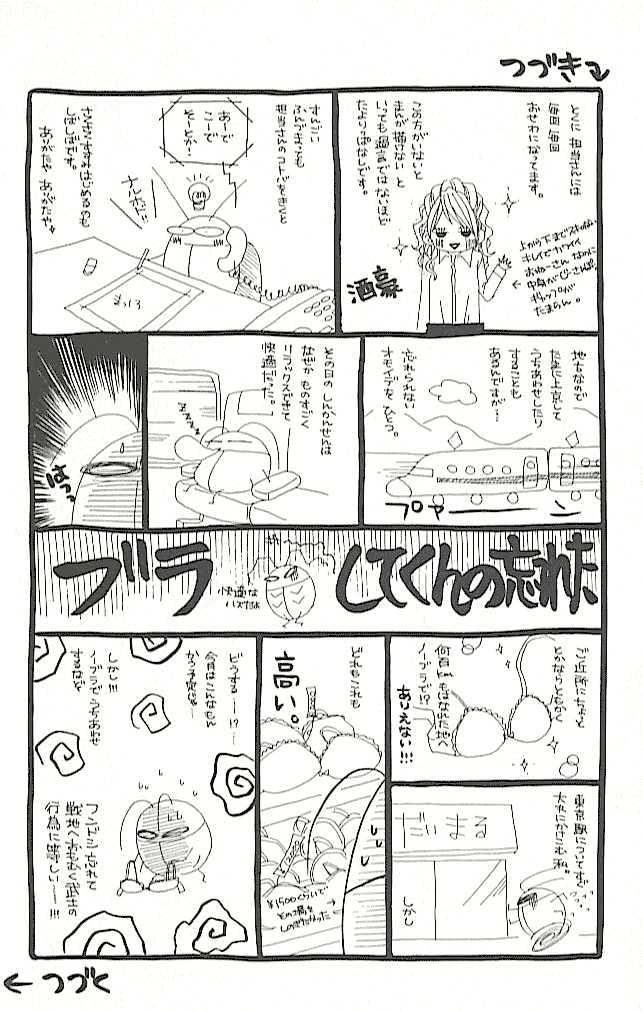 つづき
とくに 担当さんには
毎回 毎回
おせわになってます。
この方がいないと
まんが描けない と
いっても過言ではないほど
たよりっぱなしです。
上から下までスキのない
キレイでカワイイ
おねーさん なのに
中身が
ギャップが
たまらん。
酒豪
すんごい
ふんづまっても
担当さんのコトバをきくと
あーで
こーで
そーとか…
ナルホド!!
まっしろ
さくさくすすみはじめるのも
しばしばです。
ありがたや ありがたや
地方なので
たまに上京して
うちあわせしたり
することも
あるんですが…
忘れられない
オモイデをひとつ。
プァーーン
その日の しんかんせんは
なぜか ものすごく
リラックスできて
快適だった。
ZZZZ
はっ
ブラ
してくんの忘れた
快適な
ハズだよ
ご近所にちょっと
とかならともかく
何百kmもはなれた地へ
ノーブラで!?
ありえない!!!
東京駅についてすぐ
大丸にかけこむ私。
だいまる
しかし
どれもこれも
高い。
¥1500くらいで
その場を
しのぎたかった
どうする……!?
今月はこんなもと
かう予定は…
しかし!!!
ノーブラでうちあわせ
するなど
フンドシ忘れて
戦地へおもむく武士の
行為に等しい…!!!
つづく